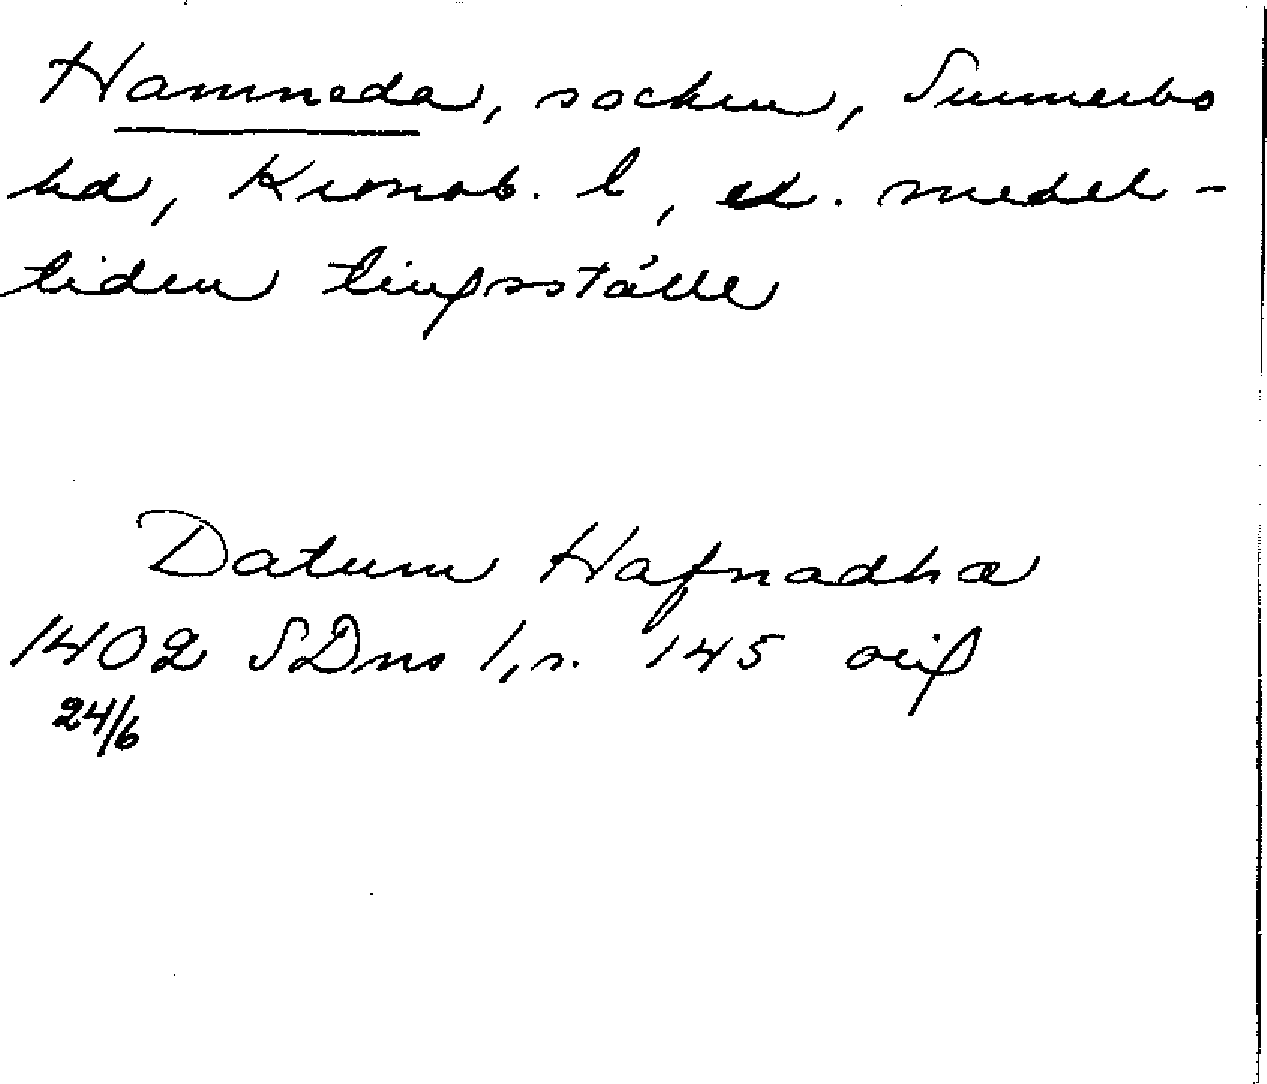 Hamneda, socken, Sunnerbo
hd, Kronob. l, ed. medel-
tiden tingsställe
Datum Hafnadha
1402 SDns 1, s. 145 orig
24/6